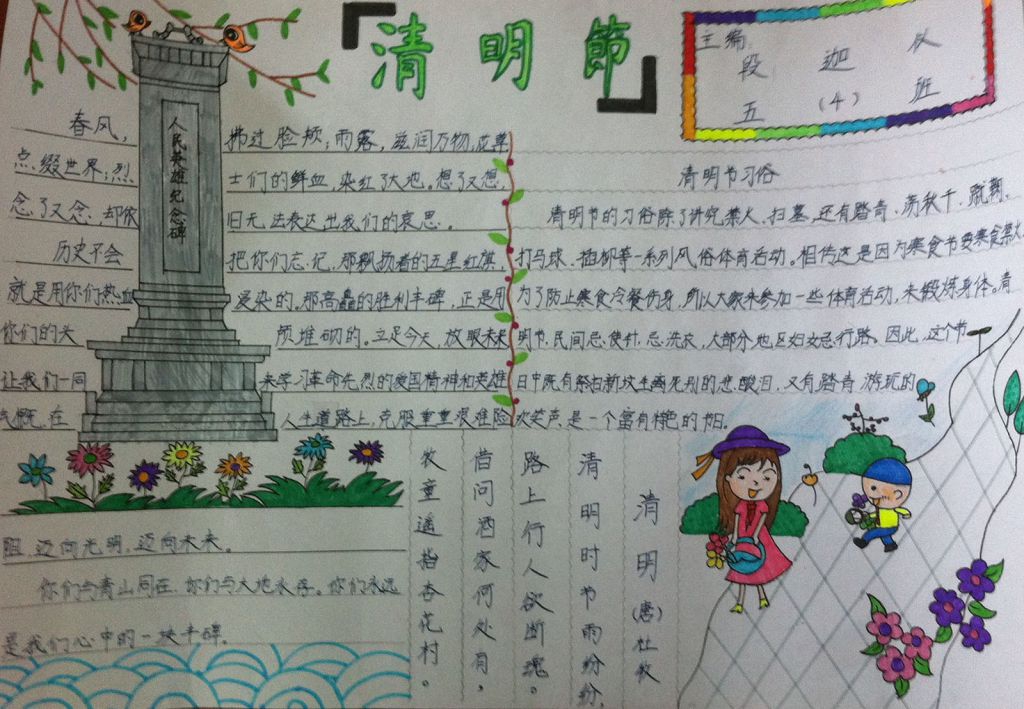 清明節
主编
段迦从
五(4)班
人民英雄纪念碑
春风,拂过脸颊;雨露,滋润万物,点
点缀世界;烈士们的鲜血,染红了大地。想了又想,
念了又念,却依旧无法表达出我们的哀思。
历史不会把你们忘记,那飘扬着的五星红旗,
就是用你们热血染的。那高矗的胜利丰碑,正是用
你们的头颅堆砌的。立足今天,放眼未来
让我们一同来学习革命先烈的爱国精神和英雄
气慨,在人生道路上,克服重重艰难险
阻,迈向光明,迈向未来。
你们与青山同在,你们与大地永存。你们永远
是我们心中的一块丰碑。
清明节习俗
清明节的习俗除了讲究禁火、扫墓,还有踏青、荡秋千、蹴鞠、
打马球、插柳等一系列风俗体育活动。相传这是因为寒食节要寒食禁火
为了防止寒食冷餐伤身,所以大家来参加一些体育活动,来锻炼身体。清
明节,民间忌使针,忌洗衣,大部分地区妇女忌行路。因此,这个节
日中既有祭扫新坟生离死别的悲酸泪,又有踏青游玩的
欢笑声,是一个富有特色的节日。
清明
(唐)杜牧
清明时节雨纷纷,
路上行人欲断魂。
借问酒家何处有,
牧童遥指杏花村。